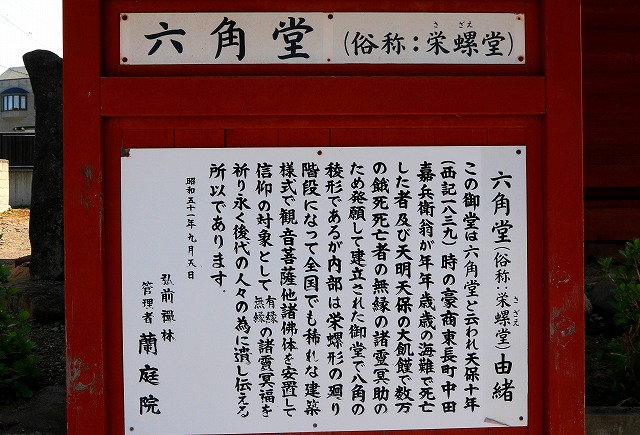 六角堂(俗称:栄螺堂)
さ ざえ
六角堂(俗称:栄螺堂)由緒
さ ざえ
この御堂は六角堂と云われ天保十年
(西記一八三九)時の豪商東長町中田
嘉兵衛翁が年年歳歳の海難で死亡
した者及び天明天保の大飢饉で数万
の餓死死亡者の無縁の諸霊冥助の
ため発願して建立された御堂で八角の
稜形であるが内部は栄螺形の廻り
階段になって全国でも稀れな建築
様式で観音菩薩他諸佛体を安置して
信仰の対象として有縁無縁の諸霊冥福を
祈り永く後代の人々の為に遺し伝える
所以であります.
昭和五十一年九月五日
弘前禅林
管理者 蘭庭院